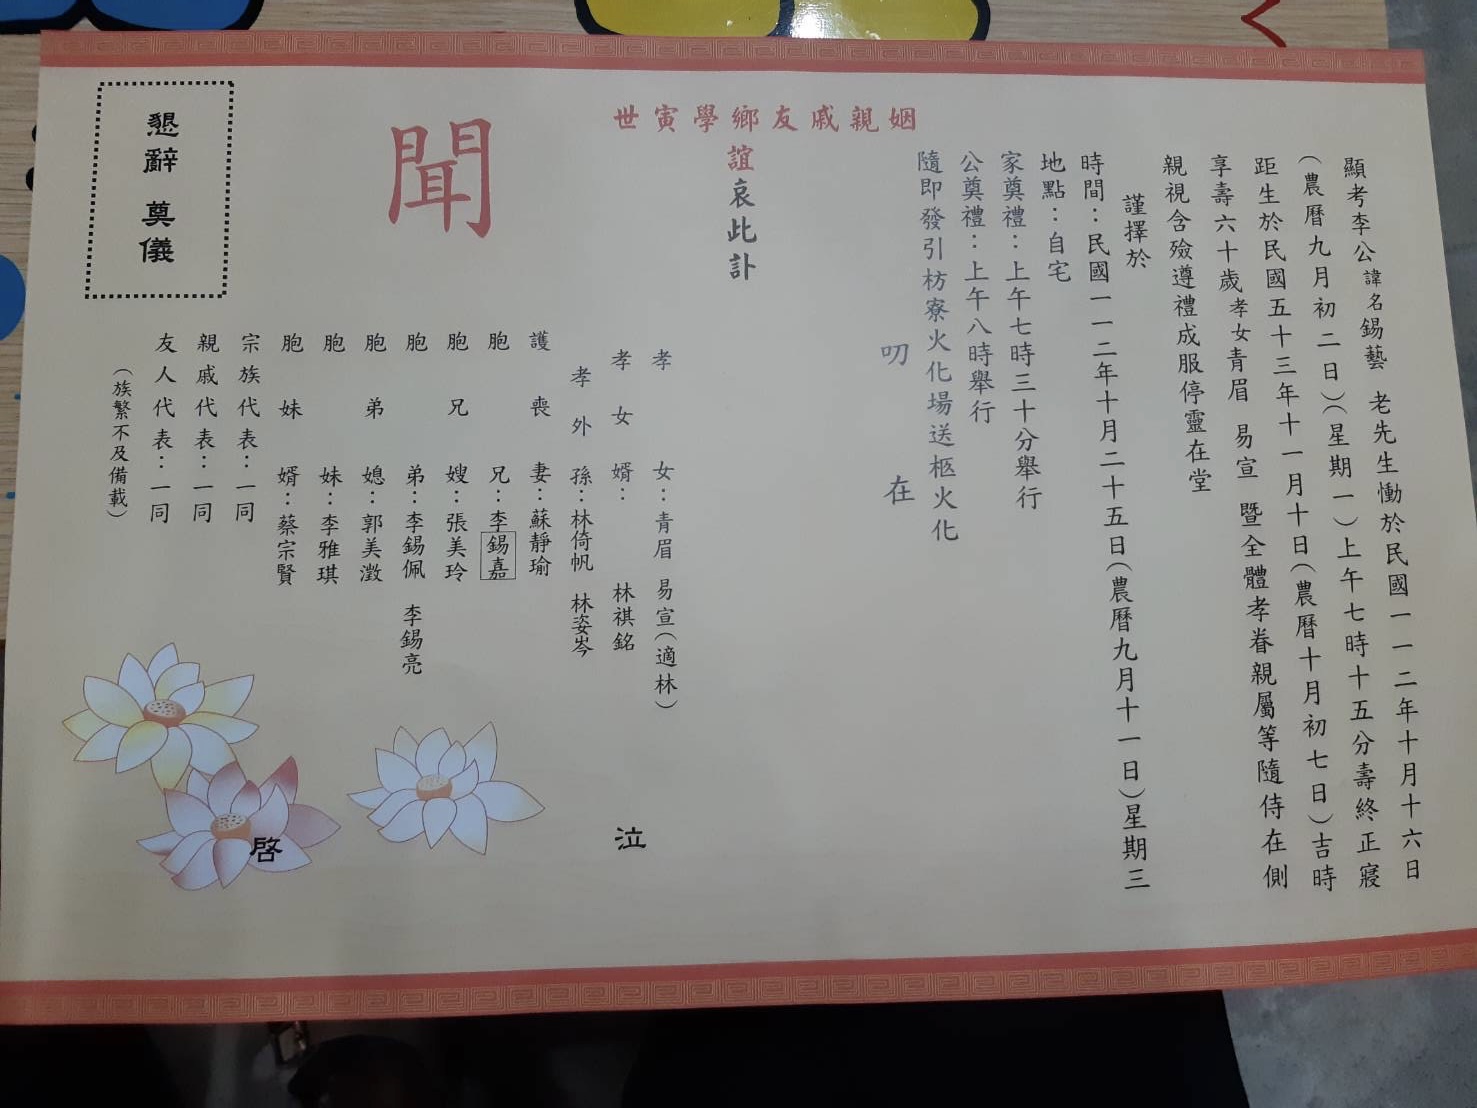 顯考李公諱名錫藝 老先生慟於民國一一二年十月十六日
（農曆九月初二日）（星期一）上午七時十五分壽終正寢
距生於民國五十三年十一月十日（農曆十月初七日）吉時
享壽六十歲孝女青眉 易宣 暨全體孝眷親屬等隨侍在側
親視含殮遵禮成服停靈在堂
謹擇於
時間：民國一一二年十月二十五日（農曆九月十一日）星期三
地點：自宅
家奠禮：上午七時三十分舉行
公奠禮：上午八時舉行
隨即發引枋寮火化場送柩火化
叨 在
姻親戚友鄉學寅世
誼哀此訃
聞
孝 女：青眉 易宣（適林）
孝女婿： 林祺銘
孝外孫：林倚帆 林姿岑
護喪妻：蘇靜瑜
胞 兄：李錫嘉
胞兄嫂：張美玲
胞 弟：李錫佩 李錫亮
胞弟媳：郭美澂
胞 妹：李雅琪
胞妹婿：蔡宗賢
宗族代表：一同
親戚代表：一同
友人代表：一同
（族繁不及備載）
泣
啓
懇辭 奠儀